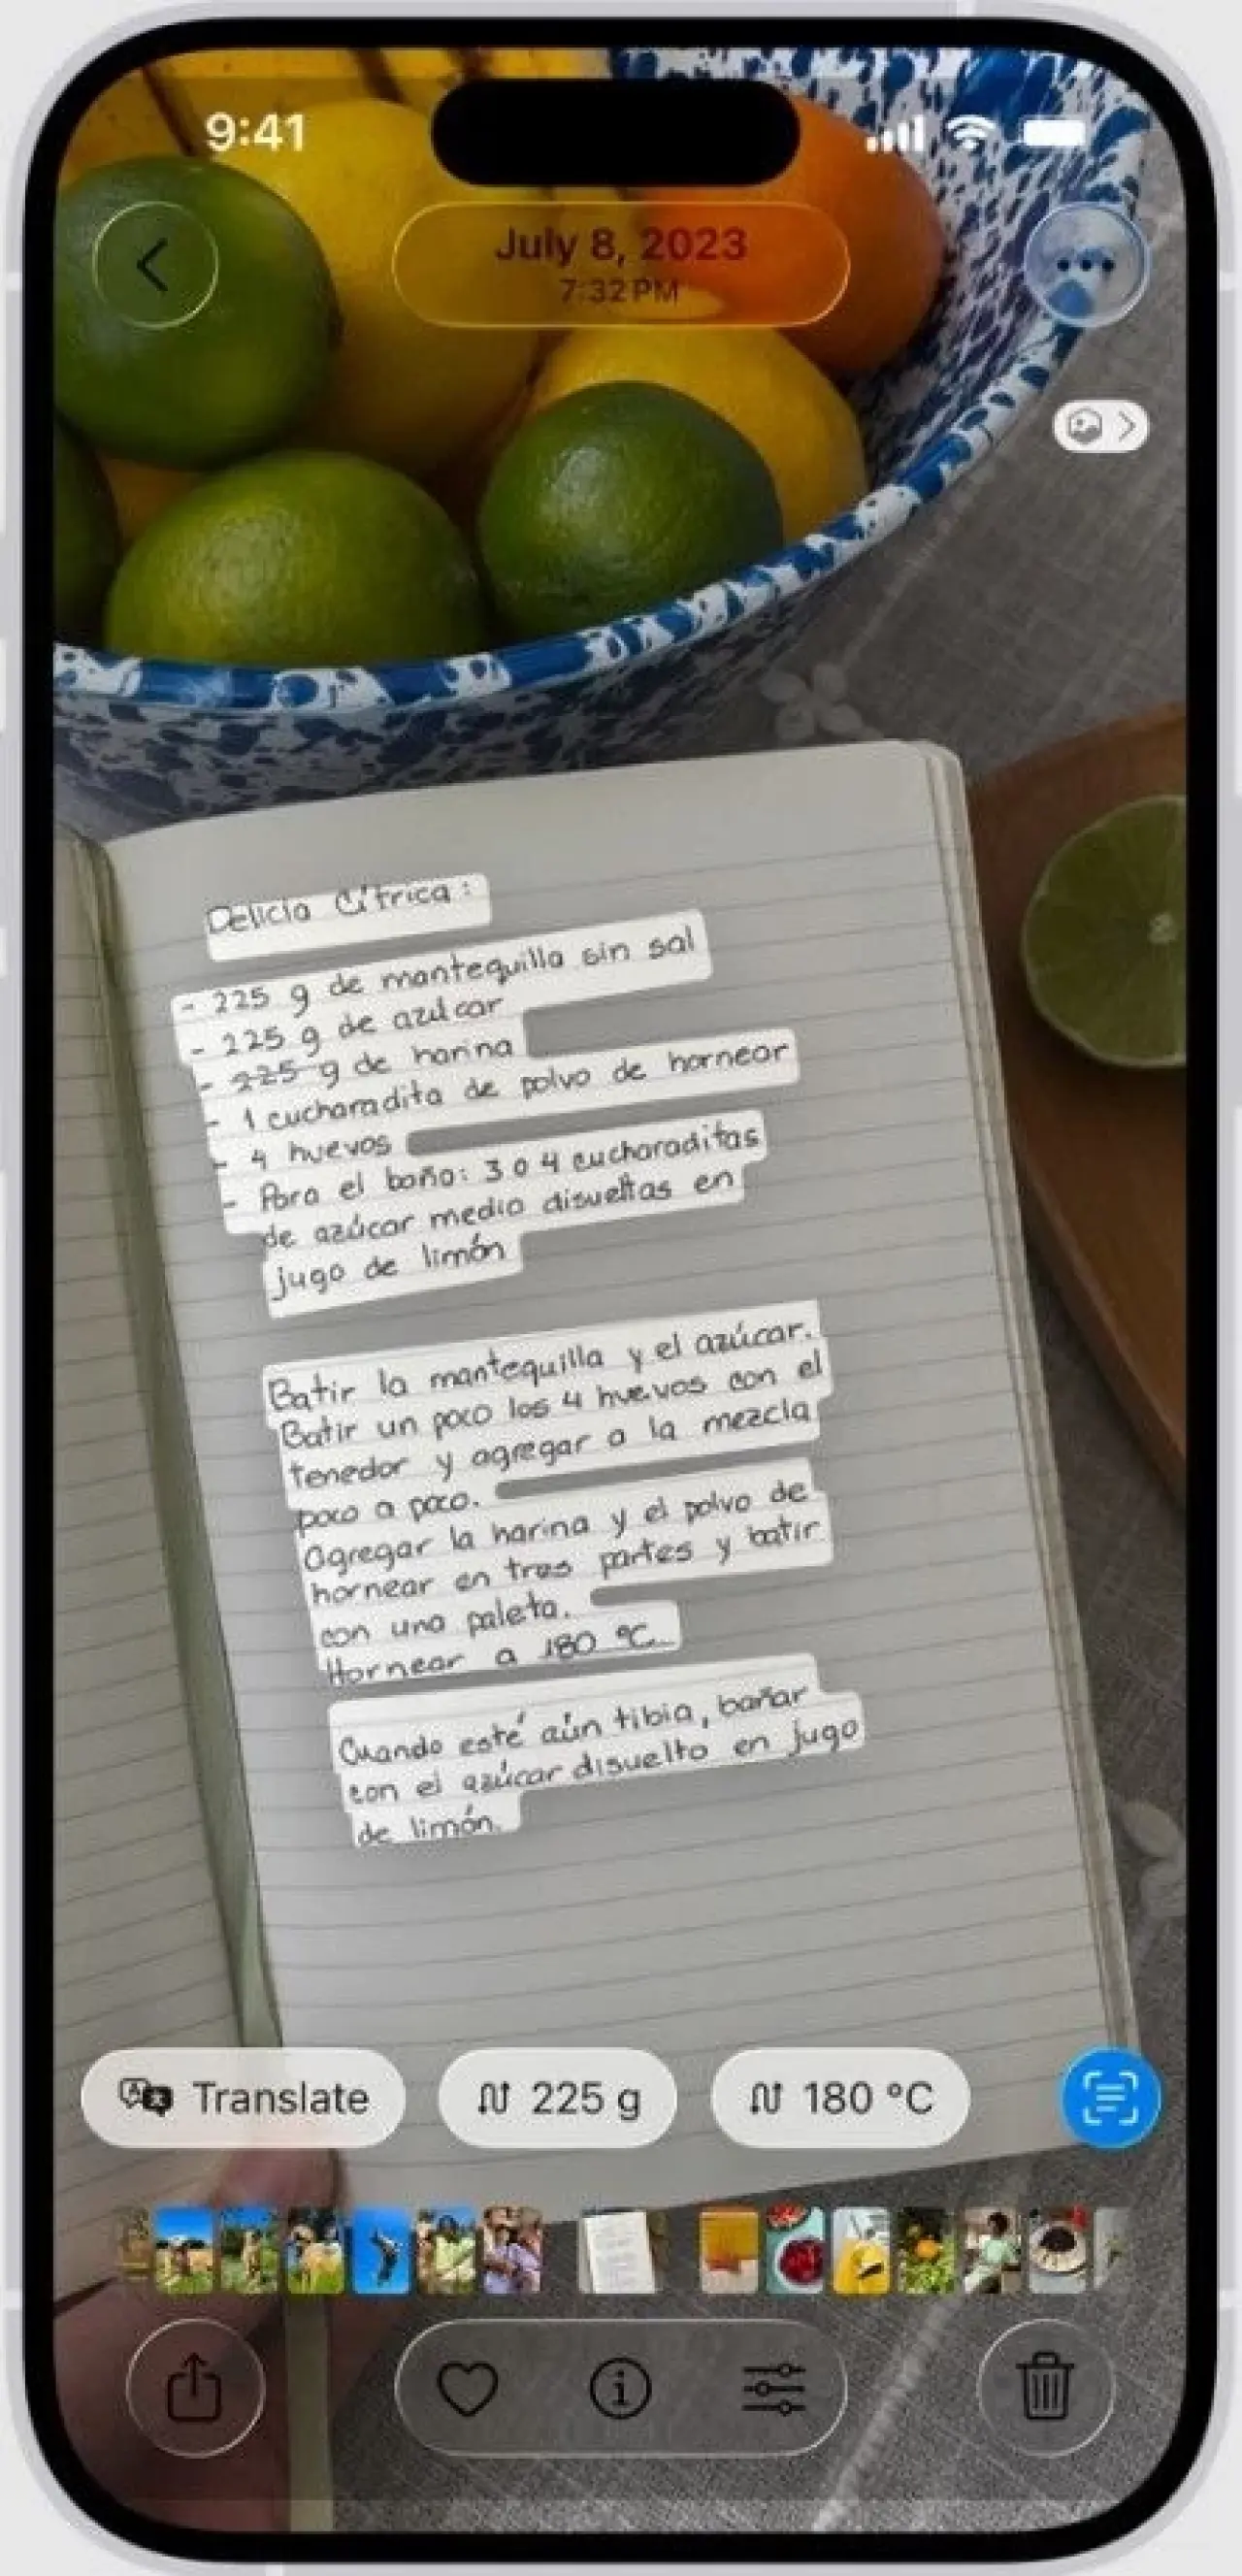 9:41
July 8, 2023
7:32 PM
Delicia Cítrica:
- 225 g de mantequilla sin sal
- 225 g de azúcar
- 225 g de harina
- 1 cucharadita de polvo de hornear
- 4 huevos
- Para el baño: 3 o 4 cucharaditas
de azúcar medio disueltas en
jugo de limón
Batir la mantequilla y el azúcar.
Batir un poco los 4 huevos con el
tenedor y agregar a la mezcla
poco a poco.
Agregar la harina y el polvo de
hornear en tres partes y batir
con una paleta.
Hornear a 180 °C
Cuando esté aún tibia, bañar
con el azúcar disuelto en jugo
de limón.
Translate
225 g
180 °C